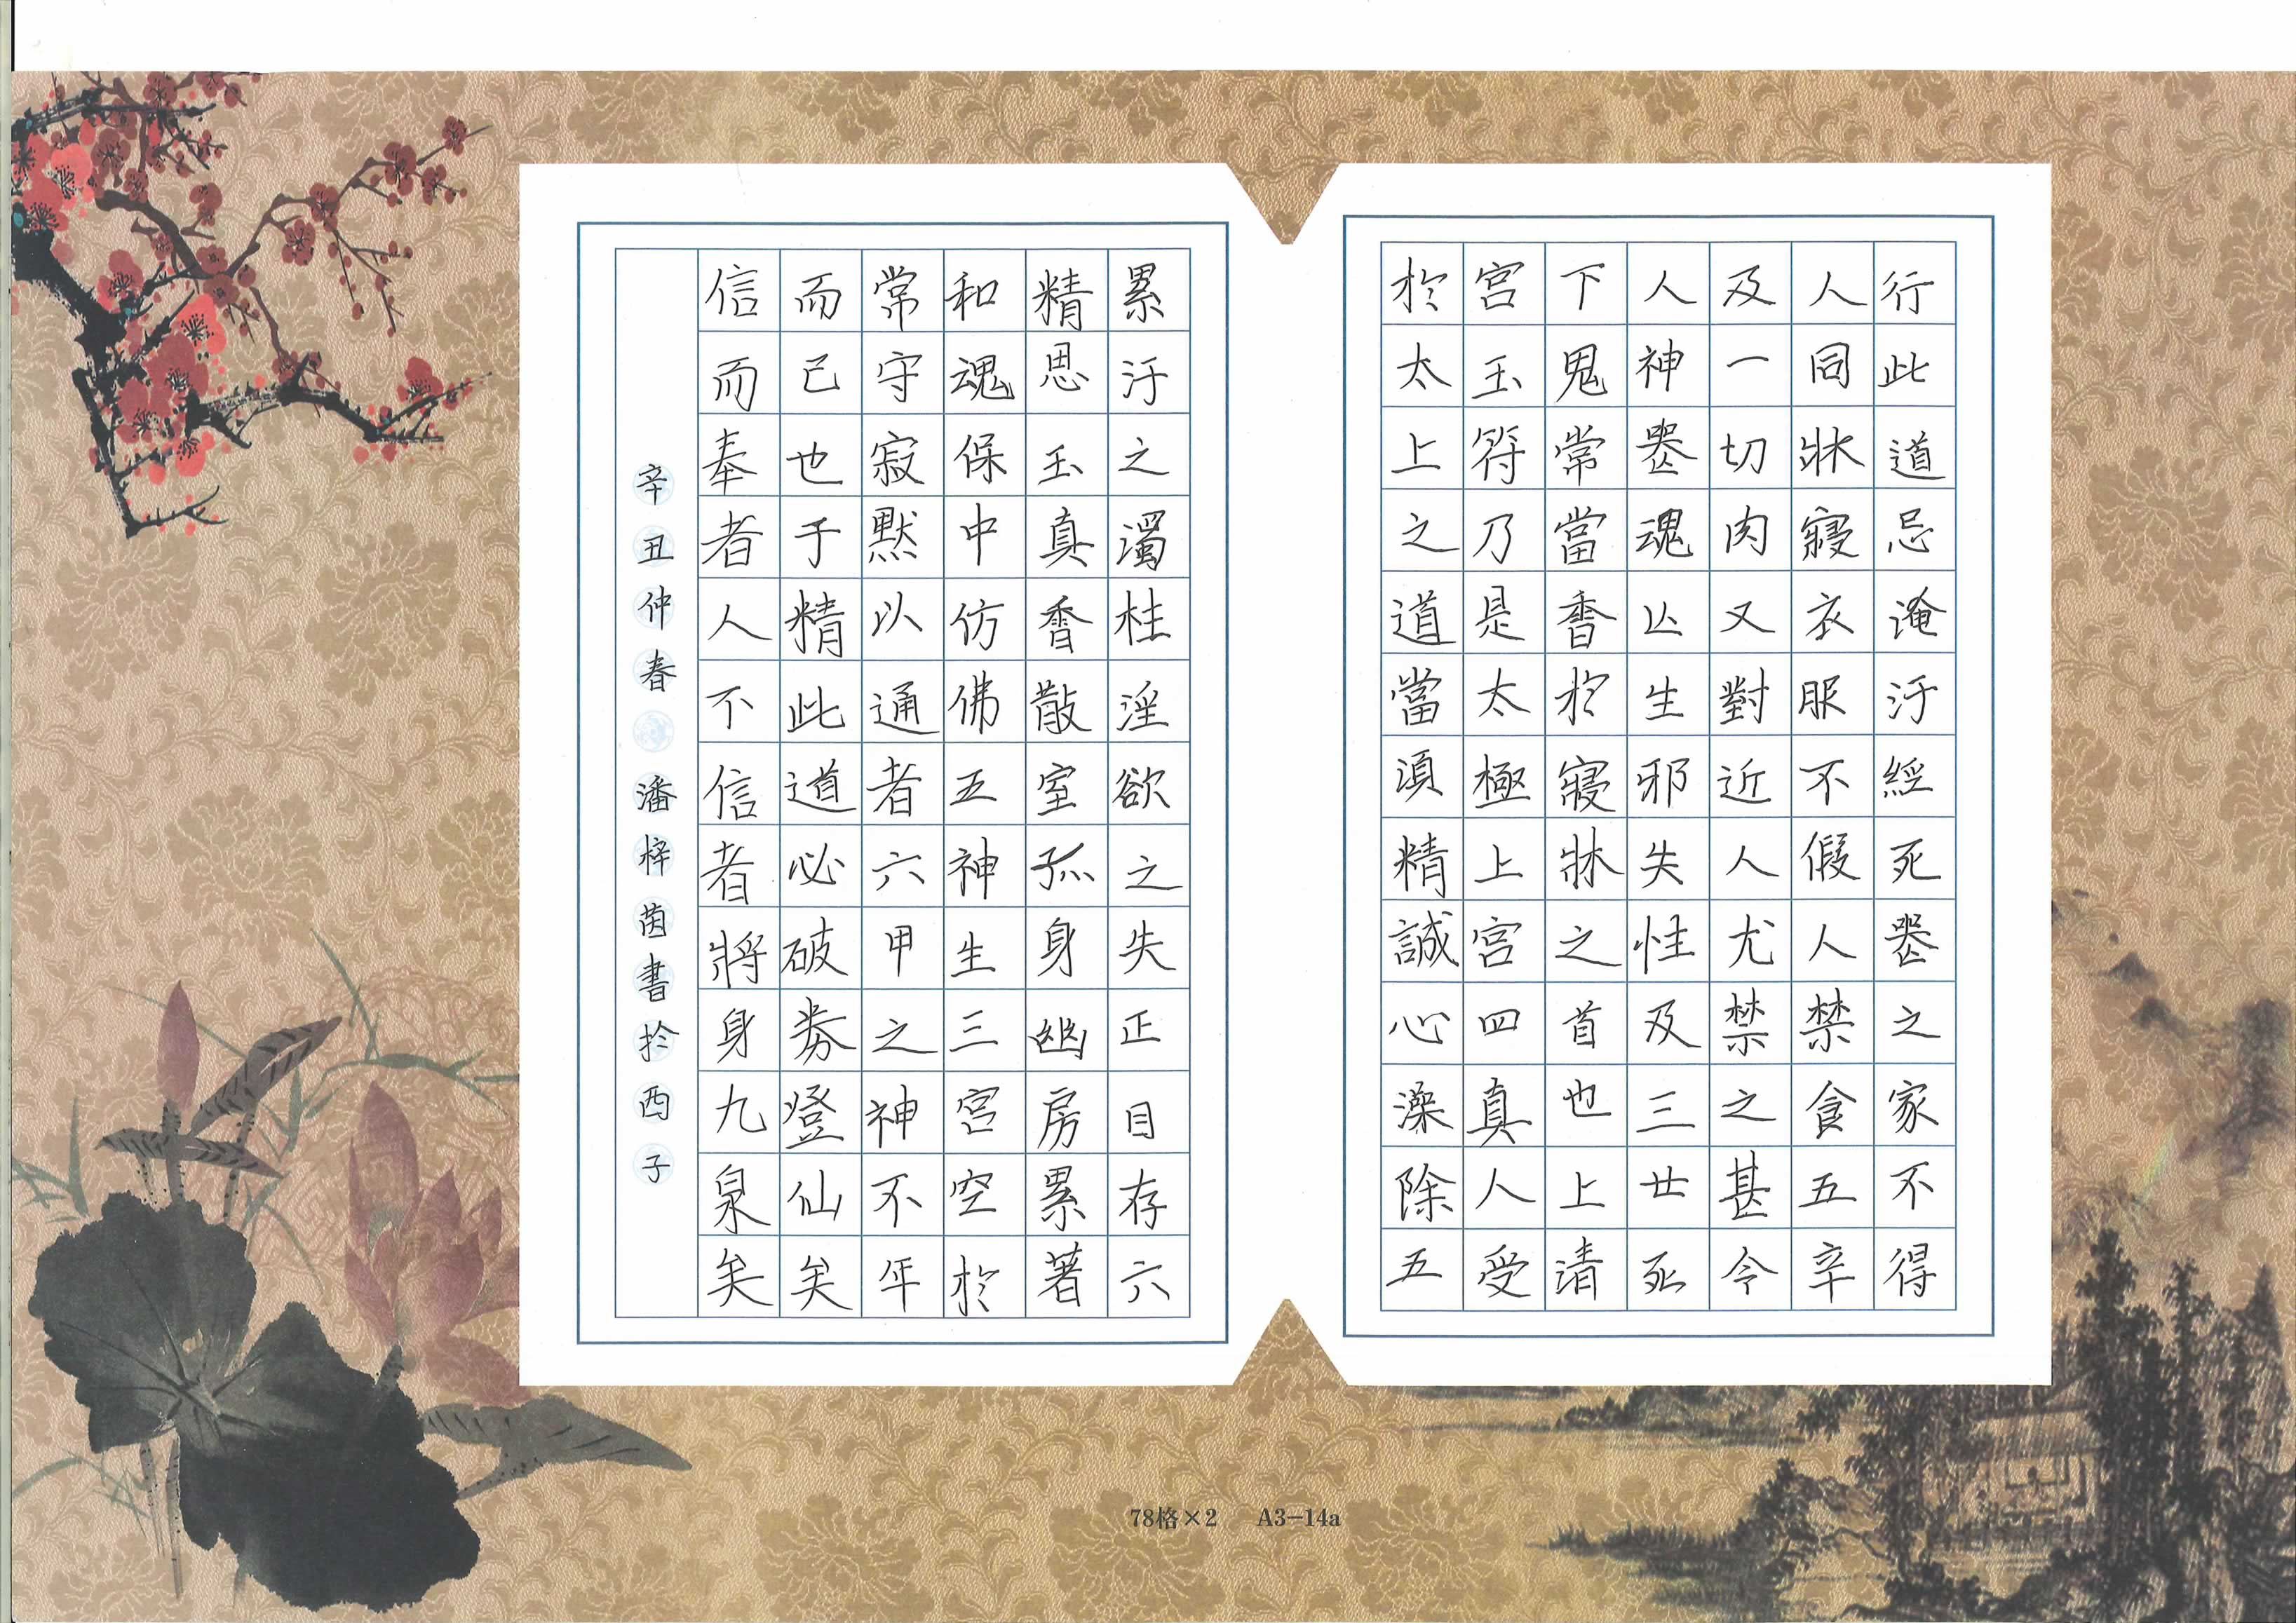 行此道忌淹汙經死喪之家不得
人同牀寢衣服不假人禁食五辛
及一切肉又對近人尤禁之甚令
人神喪魂亡生邪失性及三世死
下鬼常當香於寢牀之首也上清
宮玉符乃是太極上宮四真人受
於太上之道當須精誠心澡除五
累汙之濁柱淫欲之失正目存六
精思玉真香散室孤身幽房累著
和魂保中仿佛五神生三宮空於
常守寂默以通者六甲之神不年
而己也于精此道必破券登仙矣
信而奉者人不信者將身九泉矣
辛丑仲春 潘梓茵書於西子
78格×2 A3-14a